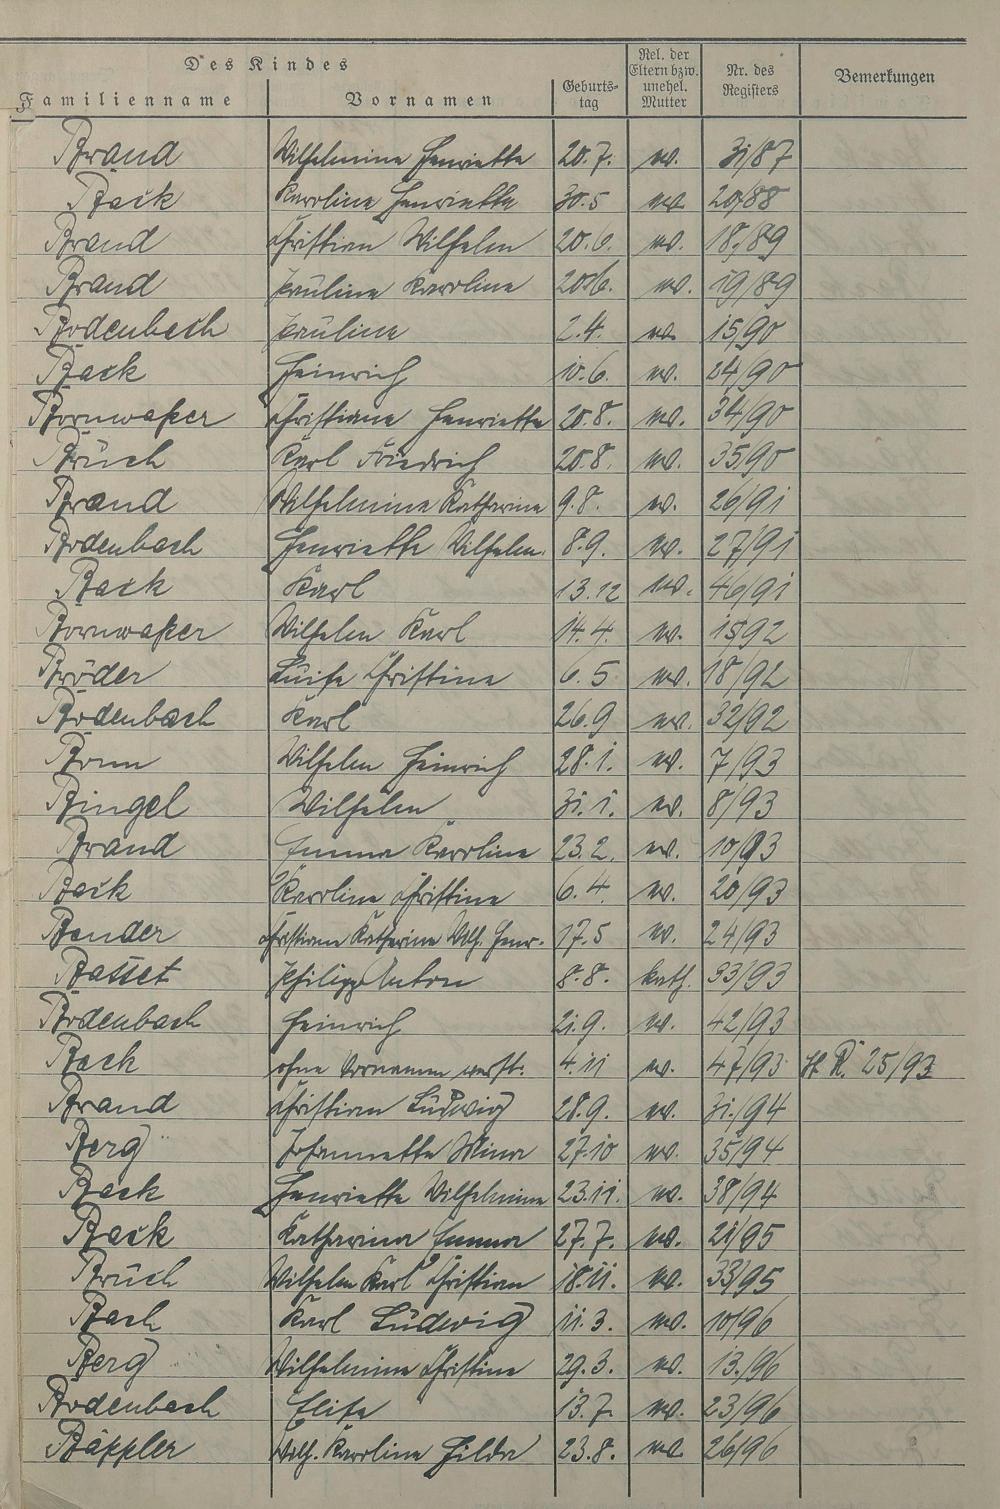 Des Kindes
Familienname Vornamen Geburtstag Rel. der Eltern bzw. unehel. Mutter Nr. des Registers Bemerkungen
Brand Wilhelmine Henriette 20.7. ev. 31/87
Back Karoline Henriette 30.5 ev. 20/88
Brand Christian Wilhelm 20.6. ev. 18/89
Brand Pauline Karoline 20.6. ev. 19/89
Bodenbach Pauline 2.4. ev. 15/90
Back Heinrich 10.6. ev. 24/90
Bornwaßer Christiane Henriette 20.8. ev. 34/90
Brüch Karl Friedrich 20.8. ev. 35/90
Brand Wilhelmine Katharine 9.8. ev. 26/91
Bodenbach Henriette Wilhelm. 8.9. ev. 27/91
Back Karl 13.12 ev. 46/91
Bornwaßer Wilhelm Karl 14.4. ev. 15/92
Bröder Luise Christine 6.5 ev. 18/92
Bodenbach Karl 26.9 ev. 32/92
Bonn Wilhelm Heinrich 28.1. ev. 7/93
Bingel Wilhelm 31.1. ev. 8/93
Brand Emma Karoline 23.2. ev. 10/93
Back Karoline Christine 6.4. ev. 20/93
Bender Christiane Katharine Wilh. Henr. 17.5 ev. 24/93
Basset Philipp Anton 8.8. kath. 33/93
Bodenbach Heinrich 21.9. ev. 42/93
Back ohne Vornamen verst. 4.11 ev. 47/93 St. R. 25/93
Brand Christian Ludwig 28.9. ev. 31/94
Berg Johannette Mina 27.10 ev. 35/94
Back Henriette Wilhelmine 23.11. ev. 38/94
Back Katharina Emma 27.7. ev. 21/95
Brüch Wilhelm Karl Christian 18.11. ev. 33/95
Bach Karl Ludwig 11.3. ev. 10/96
Berg Wilhelmine Christine 29.3. ev. 13/96
Bodenbach Elise 13.7. ev. 23/96
Bäppler Wilh. Karoline Hilda 23.8. ev. 26/96